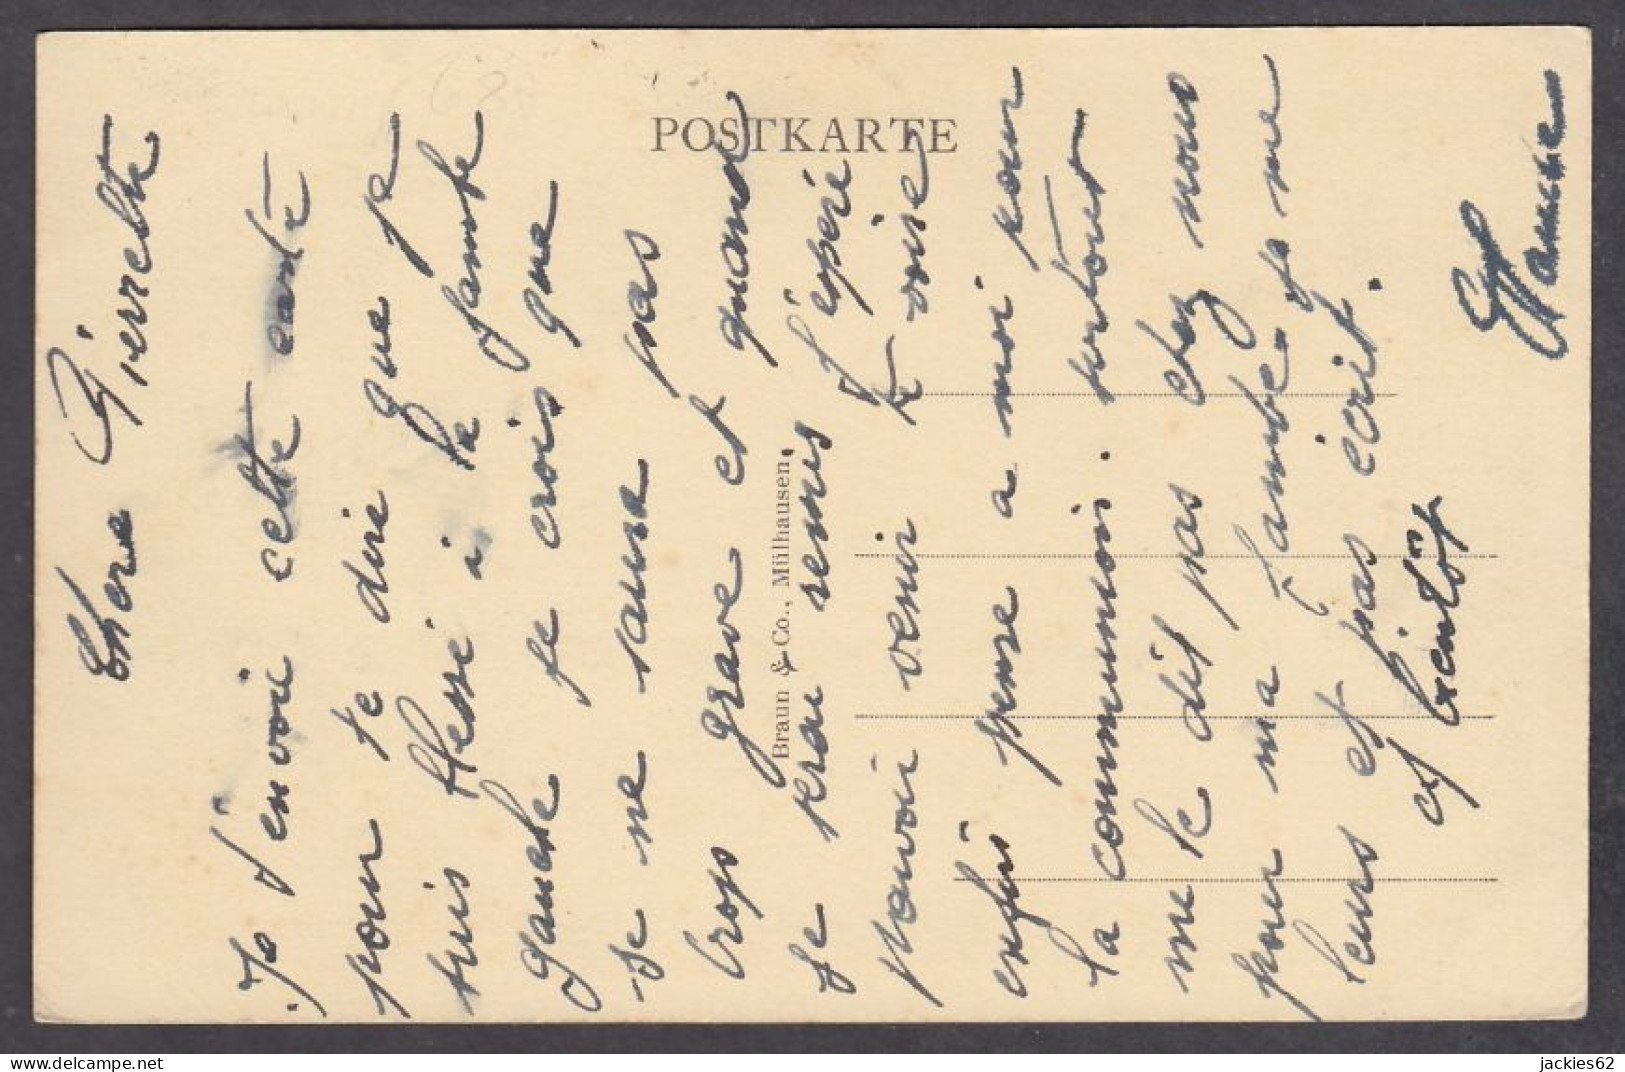 POSTKARTE
Braun & Co., Mülhausen.
Chere Pierrette
Je t'envoie cette carte
pour te dire que je
suis blessé à la jambe
gauche je crois que
se ne saura pas
trop grave et quand
je serai remis j'éspére
pouvoir venir te voise
enfin pense a moi pour
la communion. surtout
me le dit pas chez nous
pour ma jambe. je ne
leurs et pas écrit.
a bientôt